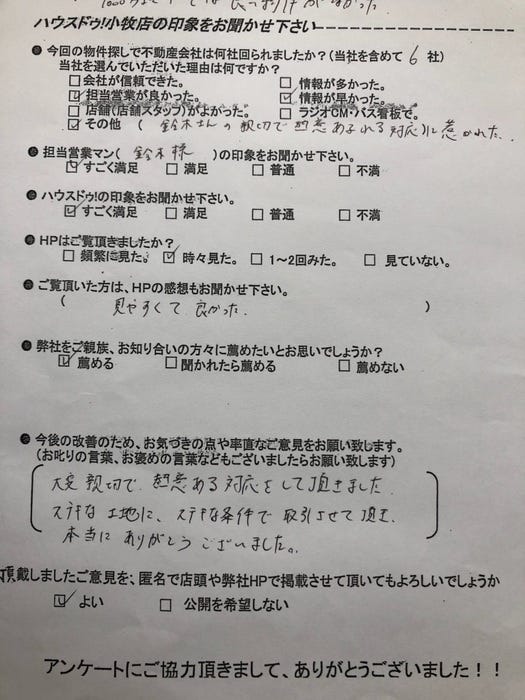 ハウスドゥ!小牧店の印象をお聞かせ下さい
今回の物件探しで不動産会社は何社回られましたか?(当社を含めて 6 社)
当社を選んでいただいた理由は何ですか?
□会社が信頼できた。 □ 情報が多かった。
☑担当営業が良かった。 ☑ 情報が早かった。
□店舗(店舗スタッフ)がよかった。 □ ラジオCM・バス看板で。
☑その他 ( 鈴木さんの親切で熱意あふれる対応)に惹かれた.
担当営業マン( 鈴木様 )の印象をお聞かせ下さい。
☑すごく満足 □ 満足 □ 普通 □ 不満
ハウスドゥ!の印象をお聞かせ下さい。
☑すごく満足 □ 満足 □ 普通 □ 不満
HPはご覧頂きましたか?
□ 頻繁に見た。 ☑ 時々見た。 □ 1~2回みた。 □ 見ていない。
ご覧頂いた方は、HPの感想もお聞かせ下さい。
( 見やすくて良かった. )
弊社をご親族、お知り合いの方々に薦めたいとお思いでしょうか?
☑ 薦める □ 聞かれたら薦める □ 薦めない
今後の改善のため、お気づきの点や率直なご意見をお願い致します。
(お叱りの言葉、お褒めの言葉などもございましたらお願い致します)
大変親切で、熱意ある対応をして頂きました
ステキな土地に、ステキな条件で取引させて頂き、
本当にありがとうございました。
頂戴しましたご意見を、匿名で店頭や弊社HPで掲載させて頂いてもよろしいでしょうか
☑ よい □ 公開を希望しない
アンケートにご協力頂きまして、ありがとうございました!!